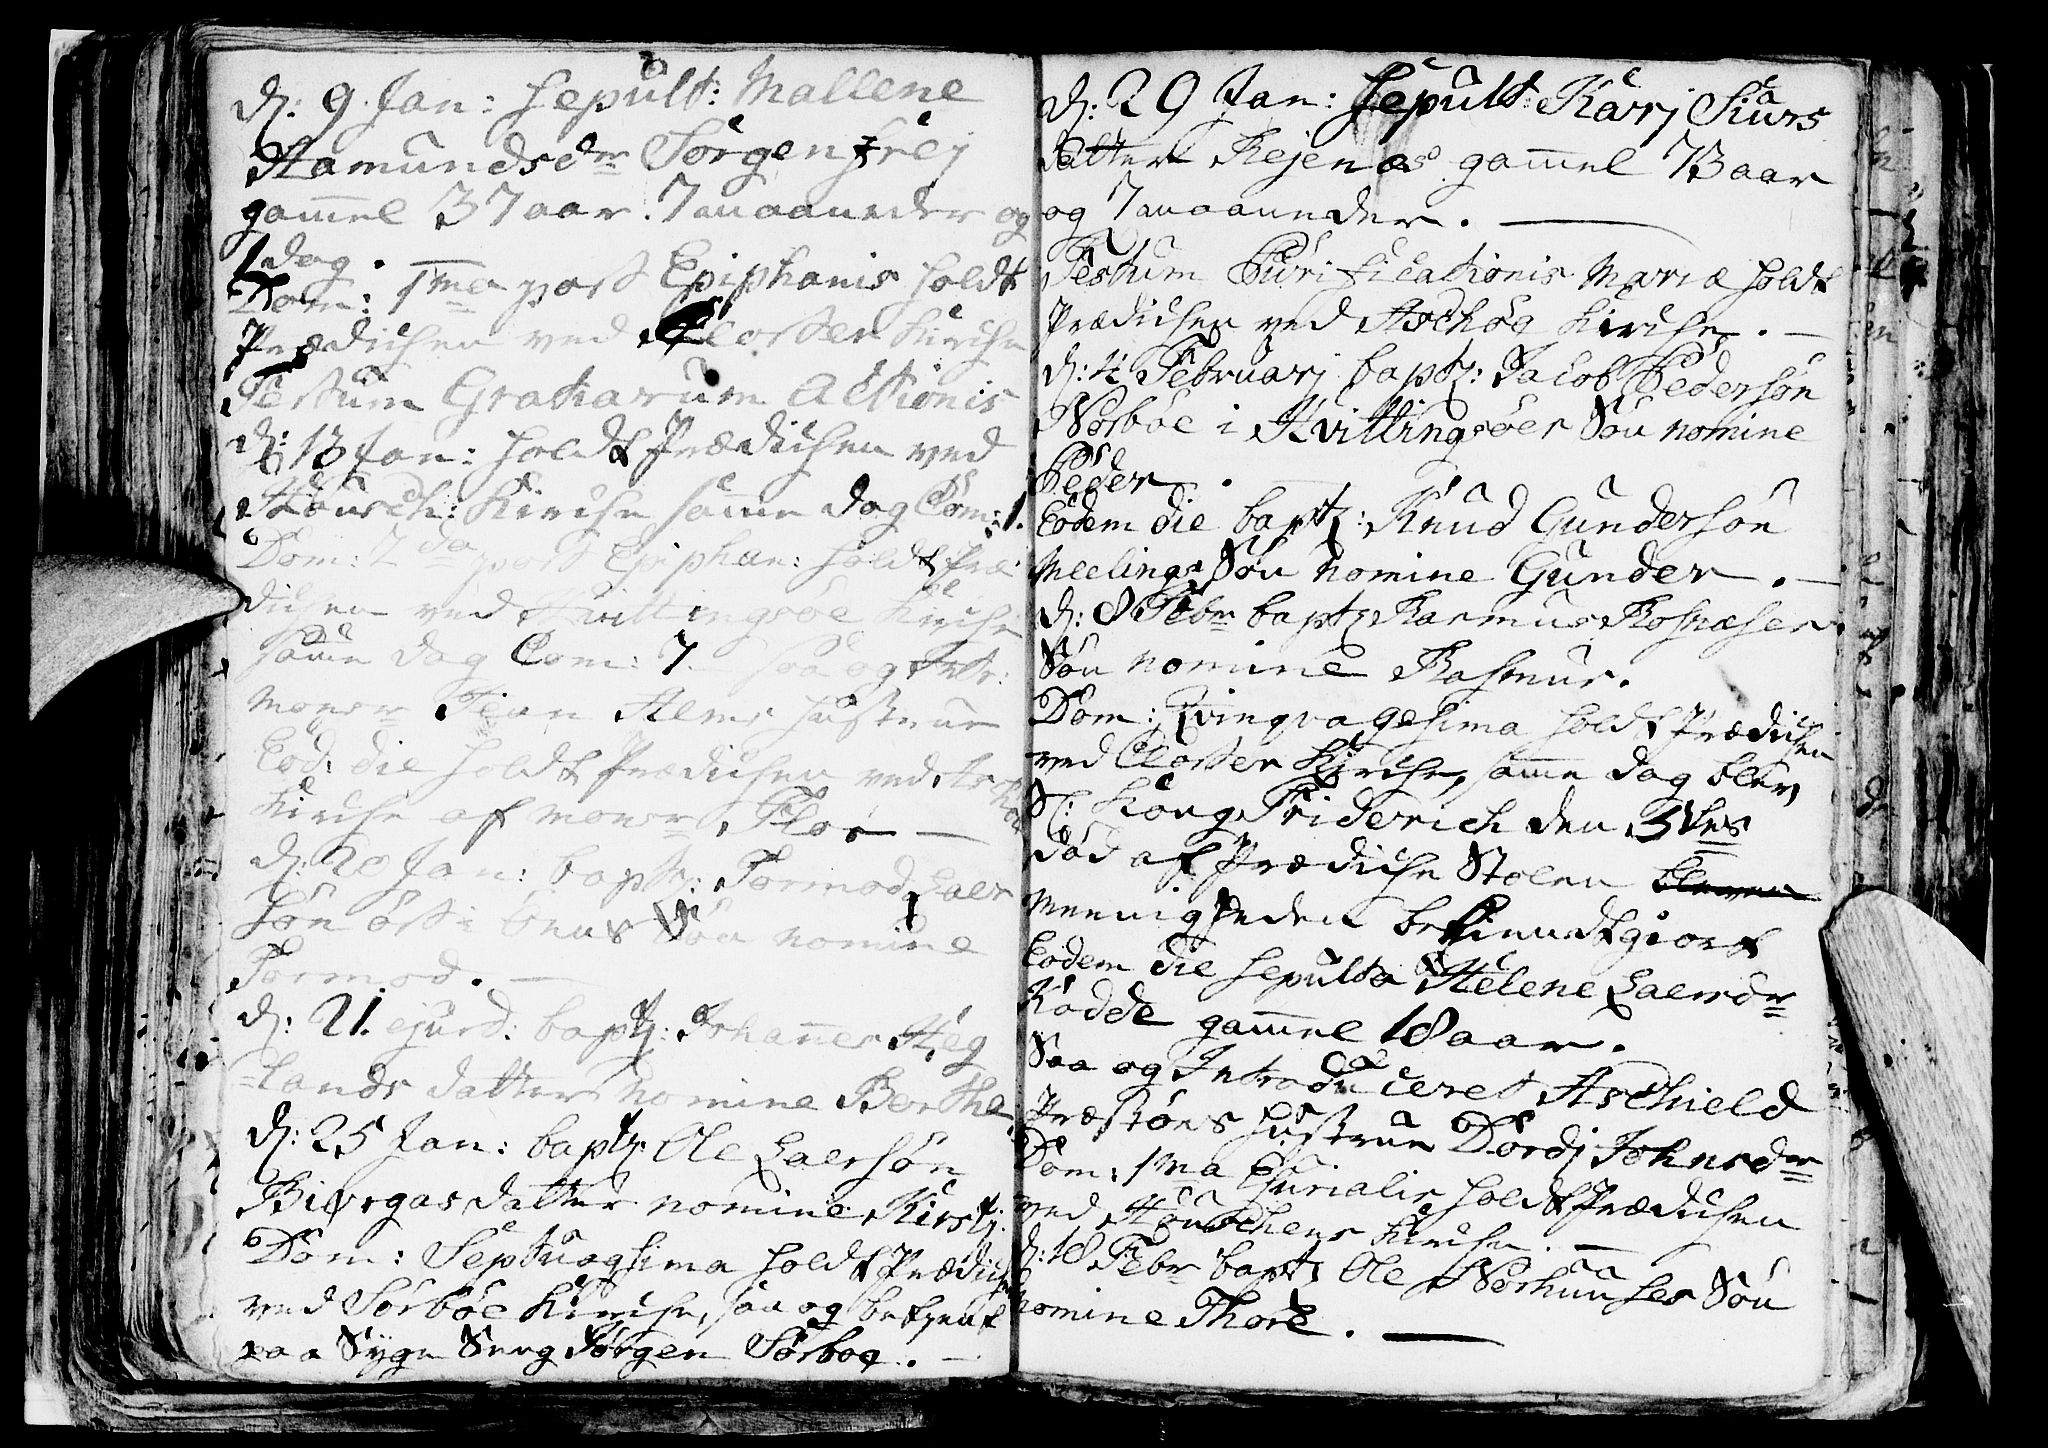 d: 9. Jan: Sepult: Mallene
Aamundsdr Sørgenfrej
gammel 37 aar. 7 maaneder og
1 dag.
Dom: 1ma post Epiphanis holdt
Prædichen ved Closter Kirche
Festum Gratiarum Actionis
d: 13 Jan: holdt Prædichen ved
Hausch: Kirche samme dag Com: 1.
Dom: 2da post Epiphan: holdt Præ
dichen ved Hvittingsøe Kirche
samme dag Com: 7. saa og Intr:
Monsr Jean Hems hustrue
Eod: die holdt Prædichen ved Aschøe
Kirche af Monsr Flor
d: 20 Jan: baptz: Tormod Laer
søn Søn nomine
Tormod.
d: 21. ejusd: baptz: Johannes Heg
lands datter nomine Berthe
d: 25 Jan: baptz Ole Laersøn
Biørgas datter nomine Kirstj.
Dom: Septuagsima holdt Prædich
ved Sørbøe Kirche, saa og betient
paa Syge Seng Jørgen Sørboe.
d: 29 Jan: Sepult: Karj Siurs
datter Rejenæs gammel 73 aar
og 7 maaneder.
Festum Purificationis Mariæ holdt
Prædichen ved Aschøe Kirche.
d: 4 Februarj baptz: Jacob Pedersøn
Norbøe i Hvittingsøes Søn nomine
Peder.
Eodem die baptz: Knud Gundersøn
Meelings Søn nomine Gunder.
d: 8 Febr baptz Rasmus Rosnæses
Søn nomine Rasmus.
Dom: Qvinqvagesima holdt Prædichen
ved Closter Kirche, samme dag blev
Sl: Kong Friderich den 5tes
død af Prædiche Stolen bleven
Menigheden bekiendtgiort
Eodem die Sepulta Helene Laersdr
Kodde gammel 18 aar.
Saa og Introduceret Aschield
Præstøns hustrue Dordj Johnsdr
Dom: 1ma holdt Prædichen
ved Hauschens Kirche.
d: 18 Febr baptz Ole Norhuuses Søn
nomine Thore.